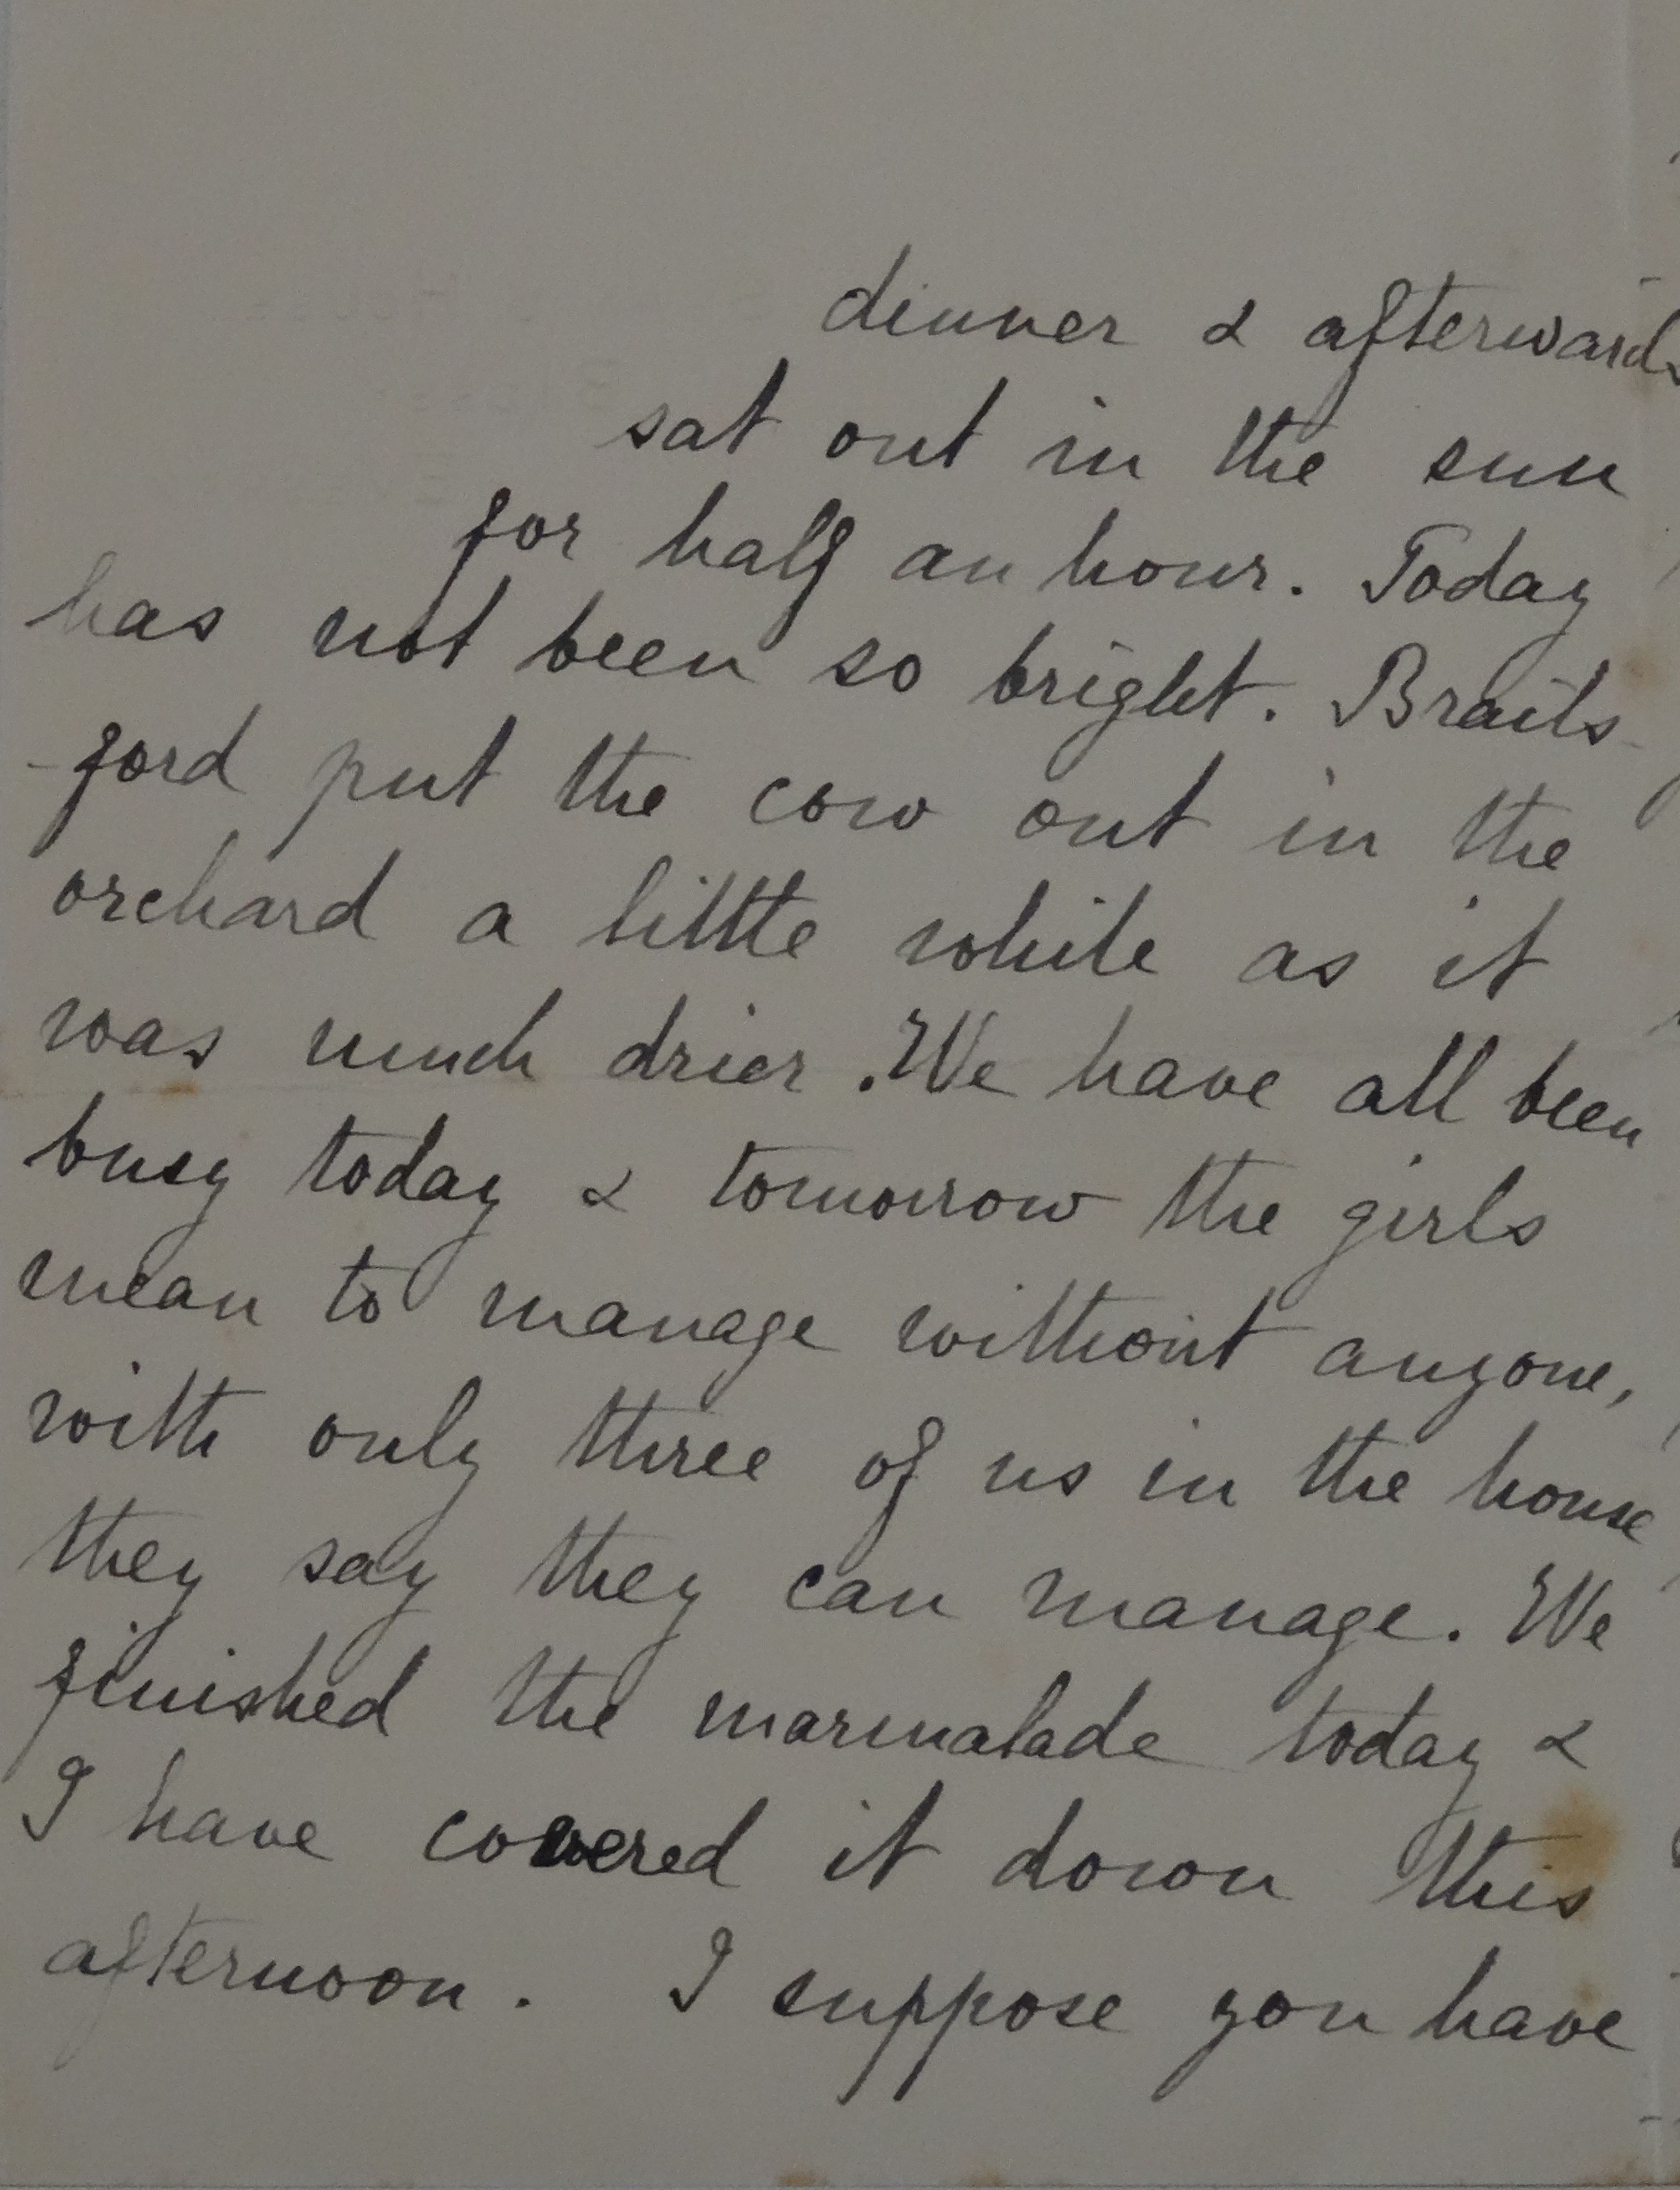 dinner & afterwards
sat out in the sun
for half an hour. Today
has not been so bright. Brails-
-ford put the cow out in the
orchard a little while as it
was much drier. We have all been
busy today & tomorrow the girls
mean to manage without anyone,
with only three of us in the house
they say they can manage. We
finished the marmalade today &
I have covered it down this
afternoon. I suppose you have